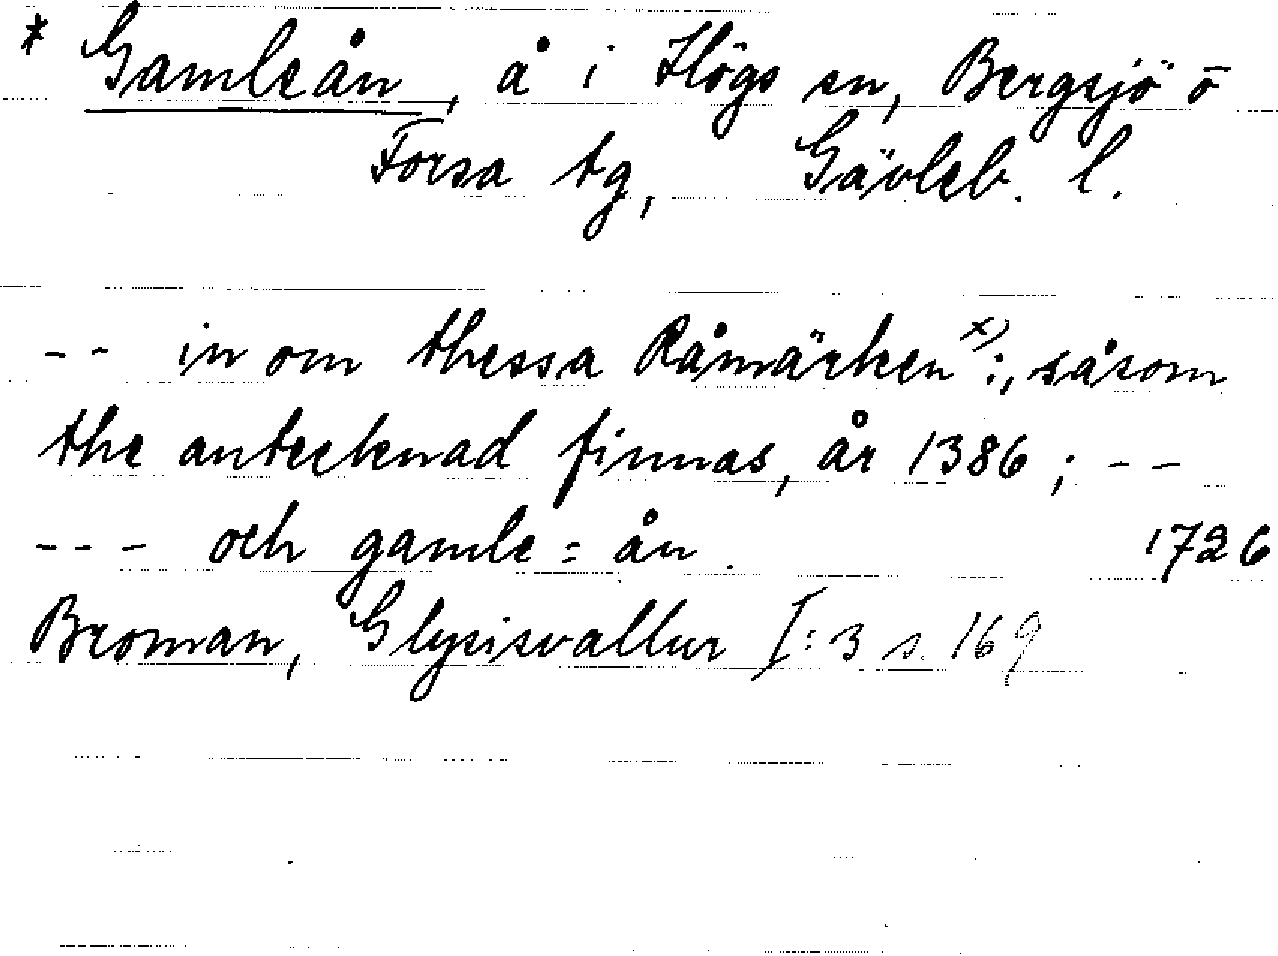 * Gamleån, å i Högs sn, Bergsjö o
Forsa tg, Gävleb. l.
-- in om thessa Råmärken x) :, såsom
the antecknad finnas, år 1386 ; --
--- och gamle = ån. 1726
Broman, Glysisvallur I:3 s. 169